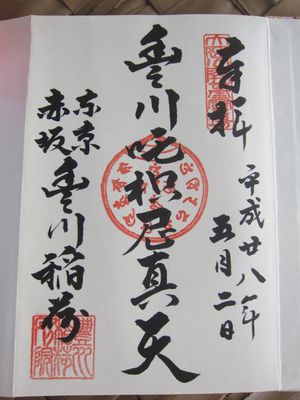 奉拝
平成廿八年
五月二日
豊川吒枳尼真天
東京
赤坂
豊川稲荷